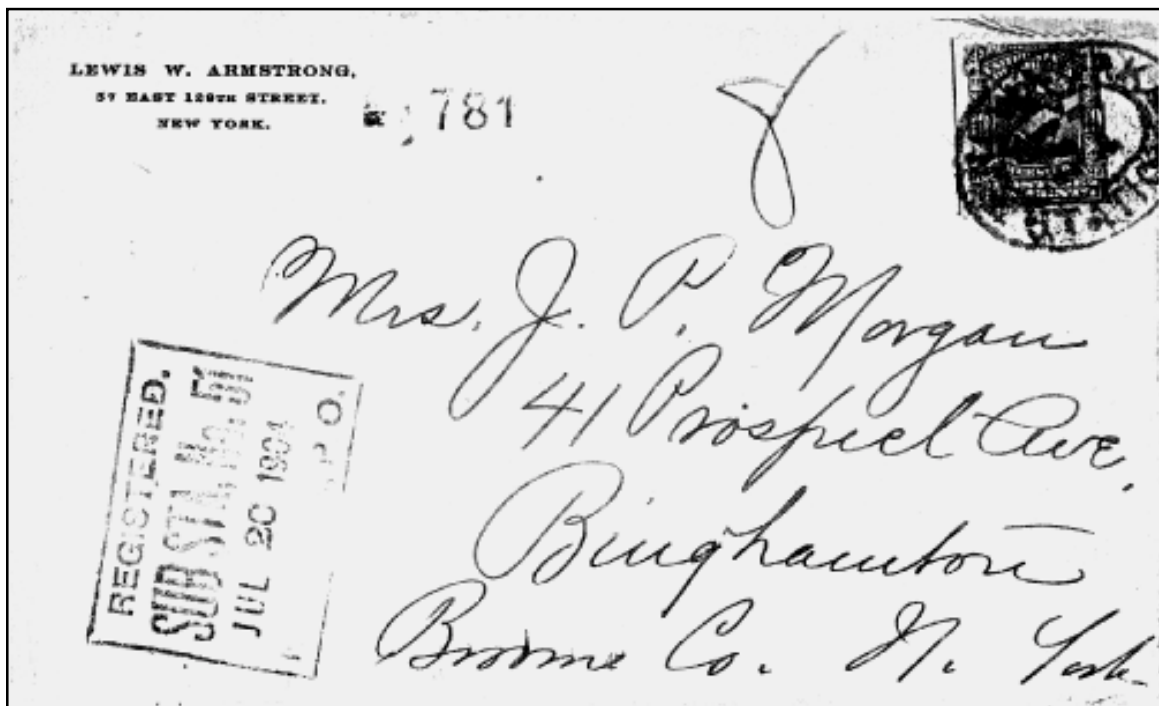 LEWIS W. ARMSTRONG,
57 EAST 129TH STREET,
NEW YORK.
781
8
Mrs. J. P. Morgan
41 Prospect Ave,
Binghamton
Broome Co. N. York
REGISTERED,
SUB STA. No. 51
JUL 20 1904
P. O.